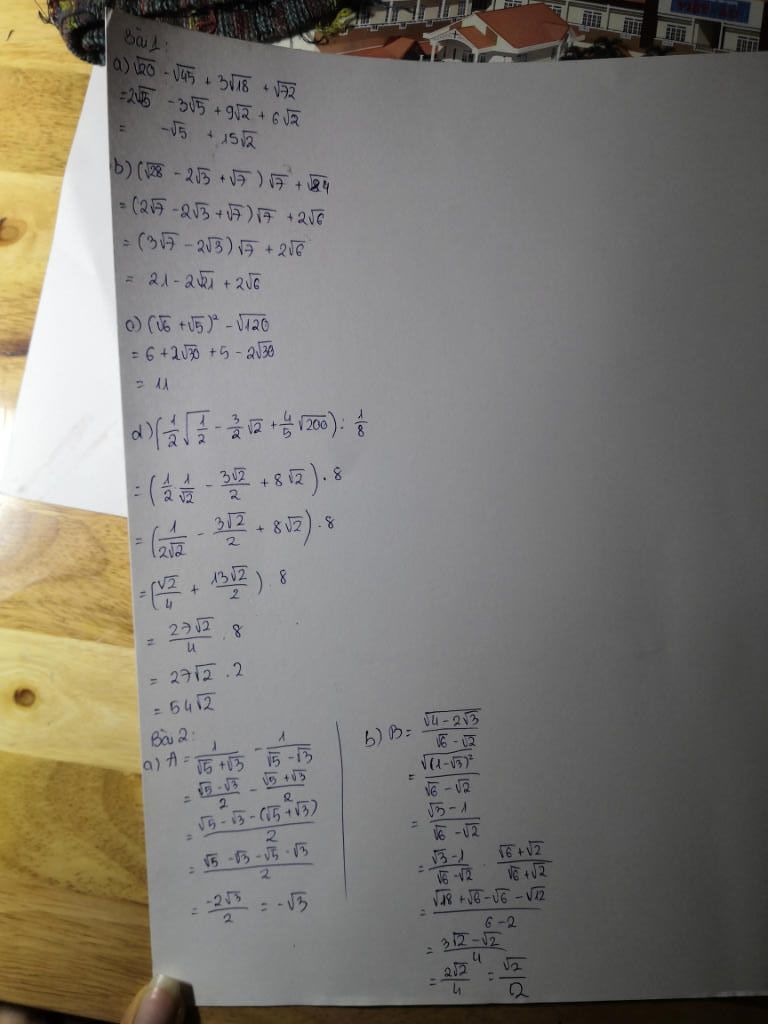 Bài 1:
a) √20 - √45 + 3√18 + √72
= 2√5 - 3√5 + 9√2 + 6√2
= -√5 + 15√2
b) (√28 - 2√3 + √7)√7 + √24
= (2√7 - 2√3 + √7)√7 + 2√6
= (3√7 - 2√3)√7 + 2√6
= 21 - 2√21 + 2√6
c) (√6 + √5)² - √120
= 6 + 2√30 + 5 - 2√30
= 11
d) (1/2 √(1/2) - 3/2 √2 + 4/5 √200) : 1/8
= (1/2 . 1/√2 - 3√2/2 + 8√2) . 8
= (1/(2√2) - 3√2/2 + 8√2) . 8
= (√2/4 + 13√2/2) . 8
= 27√2/4 . 8
= 27√2 . 2
= 54√2
Bài 2:
a) A = 1/(√5 + √3) - 1/(√5 - √3)
= (√5 - √3)/2 - (√5 + √3)/2
= (√5 - √3 - (√5 + √3))/2
= (√5 - √3 - √5 - √3)/2
= -2√3/2 = -√3
b) B = √(4 - 2√3)/(√6 - √2)
= √((1 - √3)²)/(√6 - √2)
= (√3 - 1)/(√6 - √2)
= (√3 - 1)/(√6 - √2) . (√6 + √2)/(√6 + √2)
= (√18 + √6 - √6 - √12)/(6 - 2)
= (3√2 - √2)/4
= 2√2/4 = √2/2